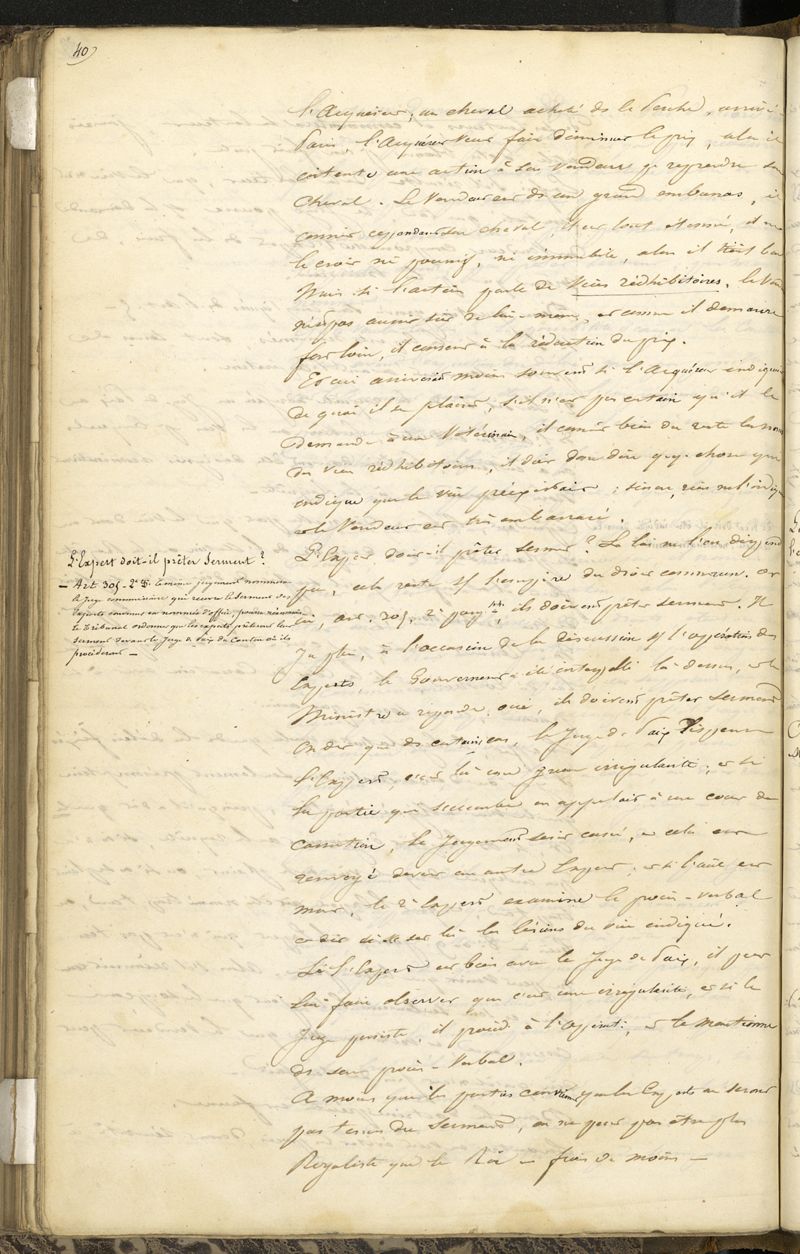 40
l'Acquéreur, un cheval acheté ds le Perche, arrivé à
Paris, l'Acquéreur veut faire diminuer le prix, alors il
intente une action à son Vendeur pr reprendre son
cheval. Le Vendeur est ds un grand embarras, il
connait cependant son cheval, il est tout étonné, il ne
le croit ni poussif, ni immobile, alors il tient bon
Mais si l'action parle de Vices rédhibitoires, le
n'est pas aussi sûr de lui-même, et comme il demeure
fort loin, il consent à la réduction du prix.
Et ceci arriverait moins souvent si l'Acquéreur indiquait
de quoi il se plaint, s'il n'est pas certain qu'il le
demande à un Vétérinaire, il connait bien du reste les noms
des vices rédhibitoires, il doit donc dire qque chose qui
indique que le vice préexistait; sinon, rien ne l'indique
et le Vendeur est très embarrassé.
L'Expert doit-il prêter Serment?
L'Expert doit-il prêter serment? La loi ne l'en dispense
– Art 305 - 2e §. Le même jugement nommera
pas, cela reste ss l'empire du droit commun. Or
le Juge commissaire qui recevra le serment des
experts convenus ou nommés d'office, pourra néanmoins
lui, art. 305, 2e parag., ils doivent prêter serment. Il
le Tribunal ordonner que les experts prêteront leur
serment devant le Juge de Paix du Canton où ils
procéderont –
y a plus, à l'occasion de la discussion ss l'opération des
Experts, le Gouvernement a été interpellé là-dessus, et le
Ministre a répondu, oui, ils doivent prêter serment
On dit que ds certains cas, le Juge de Paix dispense
l'Expert, c'est là une grave irrégularité; et si
la partie qui succombe en appelait à une cour de
Cassation, le Jugement serait cassé, et cela est
renvoyé devant un autre Expert; et si l'ani est
mort, le 2e Expert examine le procès-verbal
et dit si ce sont là les lésions du vice indiqué.
Si l'Expert est bien avec le Juge de Paix, il peut
lui faire observer que c'est une irrégularité, et si le
Juge persiste, il procède à l'opération, et le mentionne
ds son procès-Verbal.
A moins que les parties conviennent que les Experts ne seront
pas tenus du serment, on ne peut pas être plus
Royaliste que le Roi – frais de moins –